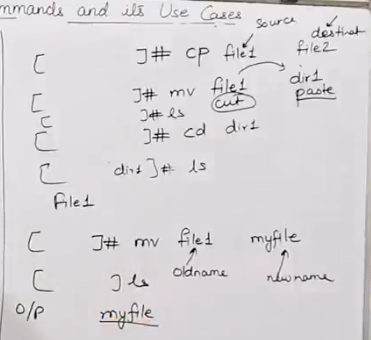 mmands and its Use Cases
source
destinat
[ ]# cp file1 file2
[ ]# mv file1 dir1
cut paste
[ ]# ls
[ ]# cd dir1
[ dir1]# ls
file1
[ ]# mv file1 myfile
oldname newname
[ ] ls
O/P myfile